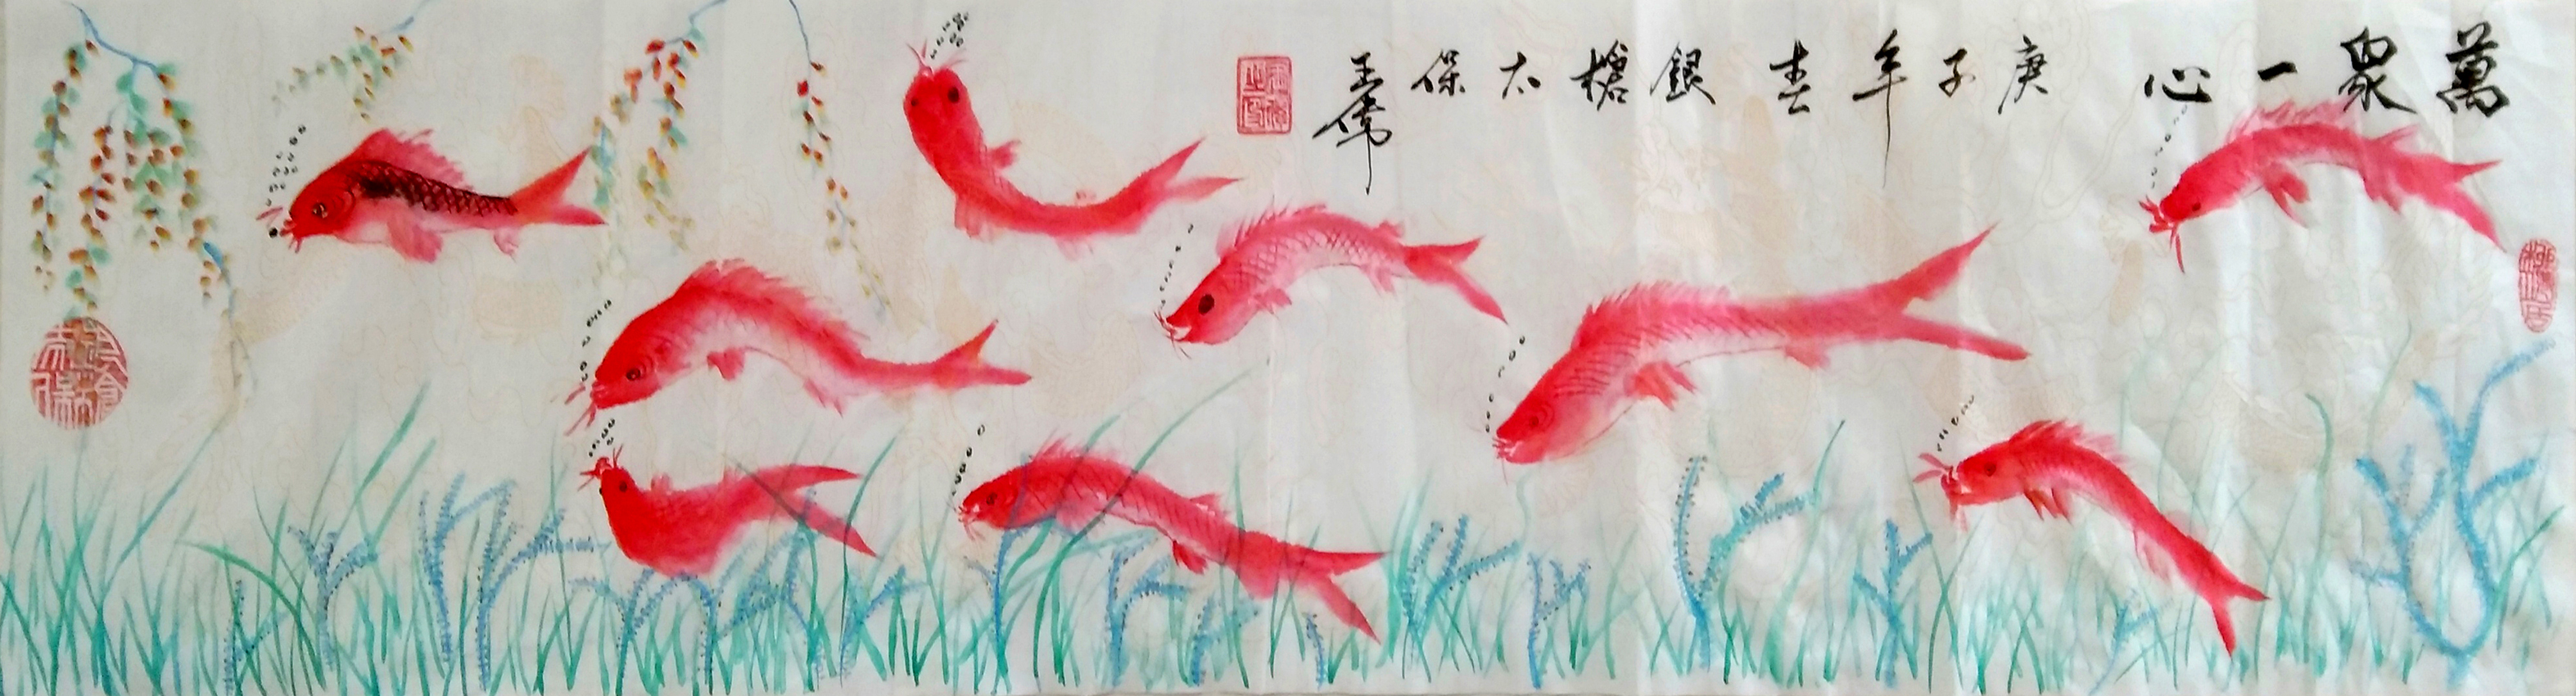 萬衆一心 庚子年春 銀槍太保 王偉